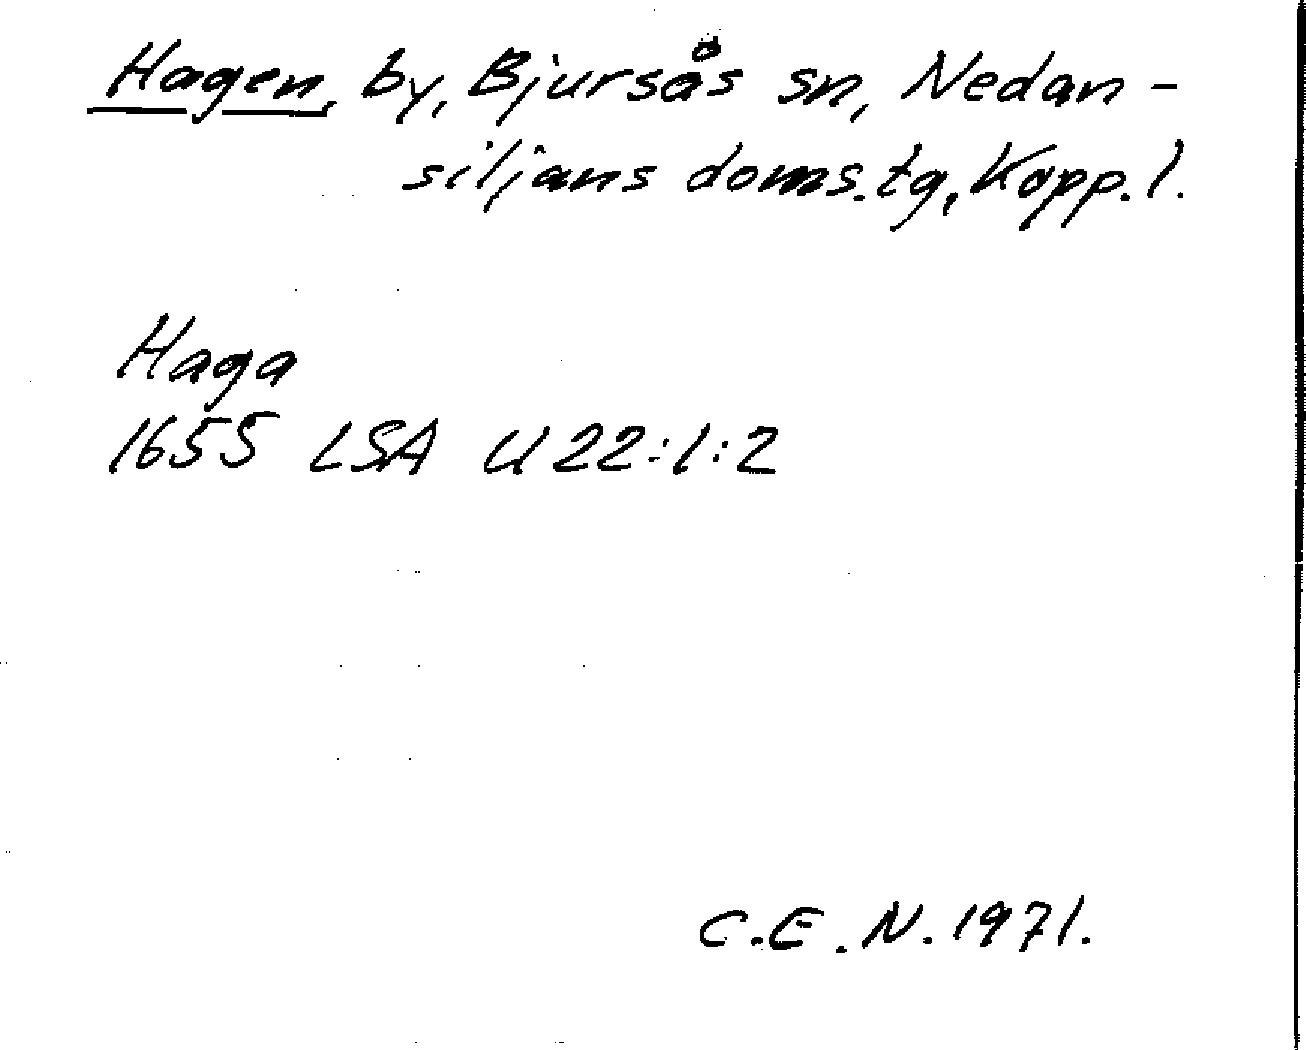 Hagen, by, Bjursås sn, Nedan-
siljans doms.tg, Kopp. l.
Haga
1655 LSA U 22:1:2
C.E.N. 1971.